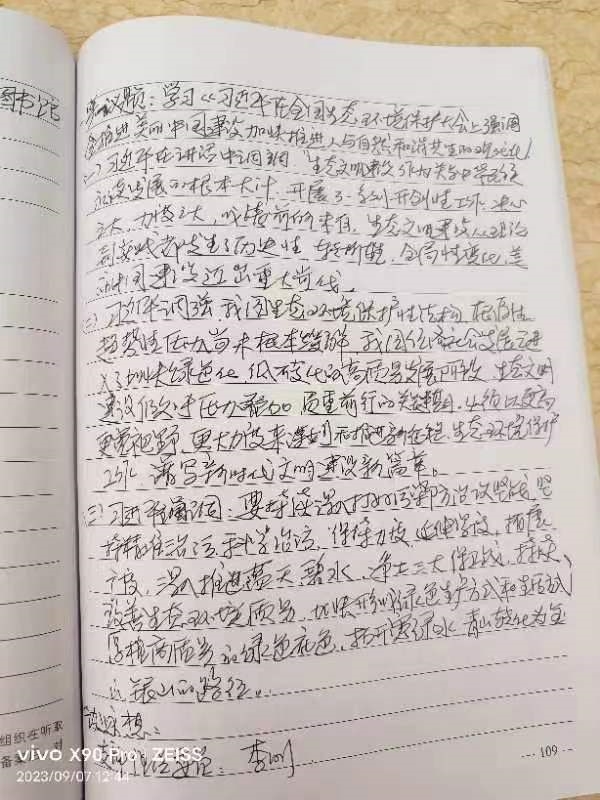 图书馆
议题：学习《习近平在全国生态环境保护大会上强调
全面推进美丽中国建设 加快推进人与自然和谐共生的现代化》
(一) 习近平在讲话中强调 生态文明建设作为关乎中华民族
永续发展的根本大计，开展了一系列开创性工作，决心
之大，力度之大，成效前所未有，生态文明建设从理论
到实践都发生了历史性、转折性、全局性变化，美
丽中国建设迈出重大步伐。
(二) 习近平强调，我国生态环境保护结构性、根源性
趋势性压力尚未根本缓解 我国经济社会发展已进
入加快绿色化、低碳化的高质量发展阶段，生态文明
建设仍处于压力叠加 负重前行的关键期，必须以更高
更宽视野，更大力度来谋划和推进新征程 生态环境保护
工作，谱写新时代文明建设新篇章。
(三) 习近平强调：要持续深入打好污染防治攻坚战，坚
持精准治污，科学治污，保持力度，延伸深度，拓展
广度，深入推进蓝天 碧水，净土三大保卫战，持续
改善生态环境质量，加快形成绿色生产方式和生活方式
厚植高质量的绿色底色，拓宽绿水青山转化为金
山银山的路径。
组织在听取
109
vivo X90 Pro | ZEISS
2023/09/07 12:44